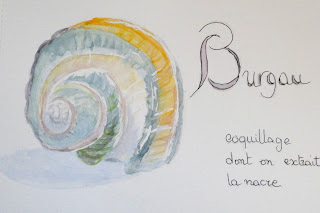 Burgau
coquillage
dont on extrait
la nacre